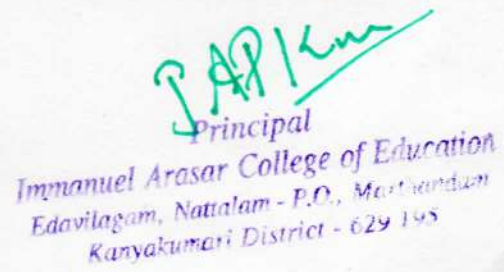 Principal
Immanuel Arasar College of Education
Edavilagam, Nattalam - P.O., Marthandam
Kanyakumari District - 629 195